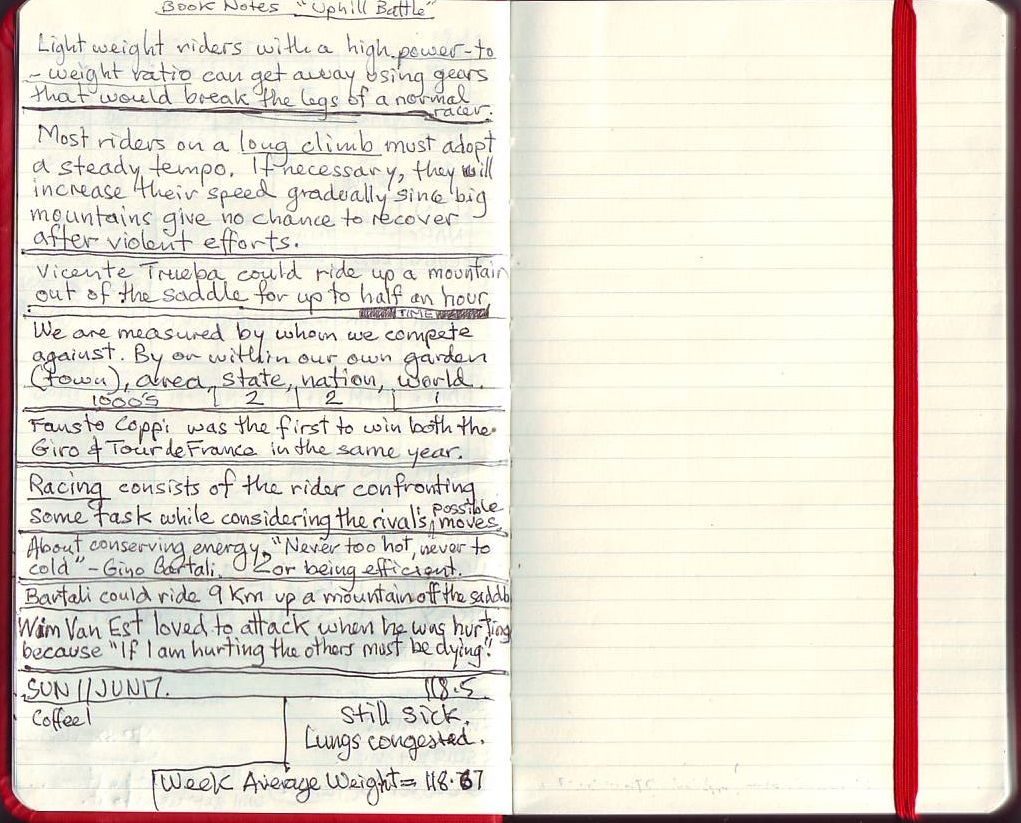 Book Notes "Uphill Battle"
Light weight riders with a high power-to
- weight ratio can get away using gears
that would break the legs of a normal
racer.
Most riders on a long climb must adopt
a steady tempo. If necessary, they will
increase their speed gradually since big
mountains give no chance to recover
after violent efforts.
Vicente Trueba could ride up a mountain
out of the saddle for up to half an hour.
TIME
We are measured by whom we compete
against. By or within our own garden
(town), area, state, nation, world.
1000's | 2 | 2 | 1
Fausto Coppi was the first to win both the
Giro & Tour de France in the same year.
Racing consists of the rider confronting
some task while considering the rival's possible moves.
About conserving energy, "Never too hot, never to
cold" - Gino Bartali. or being efficient.
Bartali could ride 9 Km up a mountain off the saddle
Wim Van Est loved to attack when he was hurting
because "If I am hurting the others must be dying"!
SUN 11 JUN 17. 118.5
Coffee 1
Still sick.
Lungs congested.
Week Average Weight = 118.67